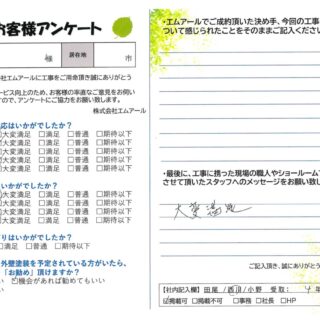 お客様アンケート
様 居在地 市
社エムアールに工事をご用命頂き誠にありがとう
ービス向上のため、お客様の率直なご意見をお伺い
ますので、アンケートにご協力をお願い致します。
株式会社エムアール
応はいかがでしたか？
大変満足 □満足 □普通 □期待以下
大変満足 □満足 □普通 □期待以下
大変満足 □満足 □普通 □期待以下
大変満足 □満足 □普通 □期待以下
はいかがでしたか？
大変満足 □満足 □普通 □期待以下
大変満足 □満足 □普通 □期待以下
大変満足 □満足 □普通 □期待以下
大変満足 □満足 □普通 □期待以下
りはいかがでしたか？
満足 □普通 □期待以下
外壁塗装を予定されている方がいたら、
「お勧め」頂けますか？
い 機会があれば勧めてもいい
い
・エムアールでご成約頂いた決め手、今回の工事
ついて感じられたことをそのままご記入ください
・最後に、工事に携った現場の職人やショールーム
させて頂いたスタッフへのメッセージをお願い致
大変満足
ご記入頂き、誠にありがとう
【社内記入欄】 田尾 / 西川 / 小野 受取： 4 年
☑掲載可 □掲載不可 □事務 □社長 □HP